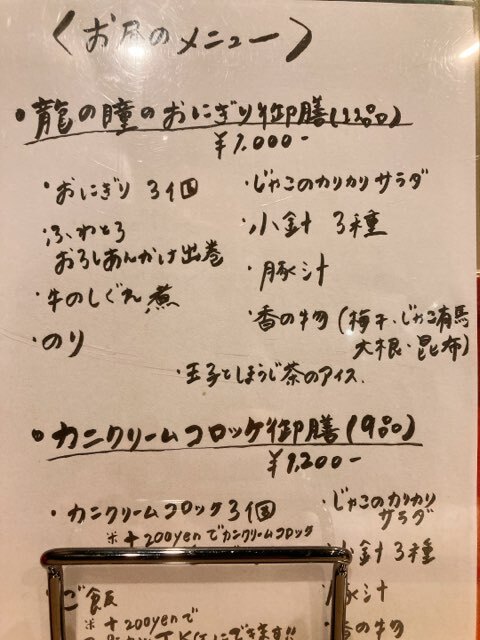 〈お昼のメニュー〉
・龍の瞳のおにぎり御膳(12品)
¥1.000-
・おにぎり 3個
・ふわとろ
おろしあんかけ出巻
・牛のしぐれ煮
・のり
・じゃこのカリカリサラダ
・小針 3種
・豚汁
・香の物(梅干・じゃこ有馬
大根・昆布)
・玉子とほうじ茶のアイス
・カニクリームコロッケ御膳(9品)
¥1,200-
・カニクリームコロッケ3個
※+200yenでカニクリームコロッケ
ご飯
※+200yenで
にできます!!
・じゃこのカリカリ
サラダ
小針 3種
豚汁
香の物